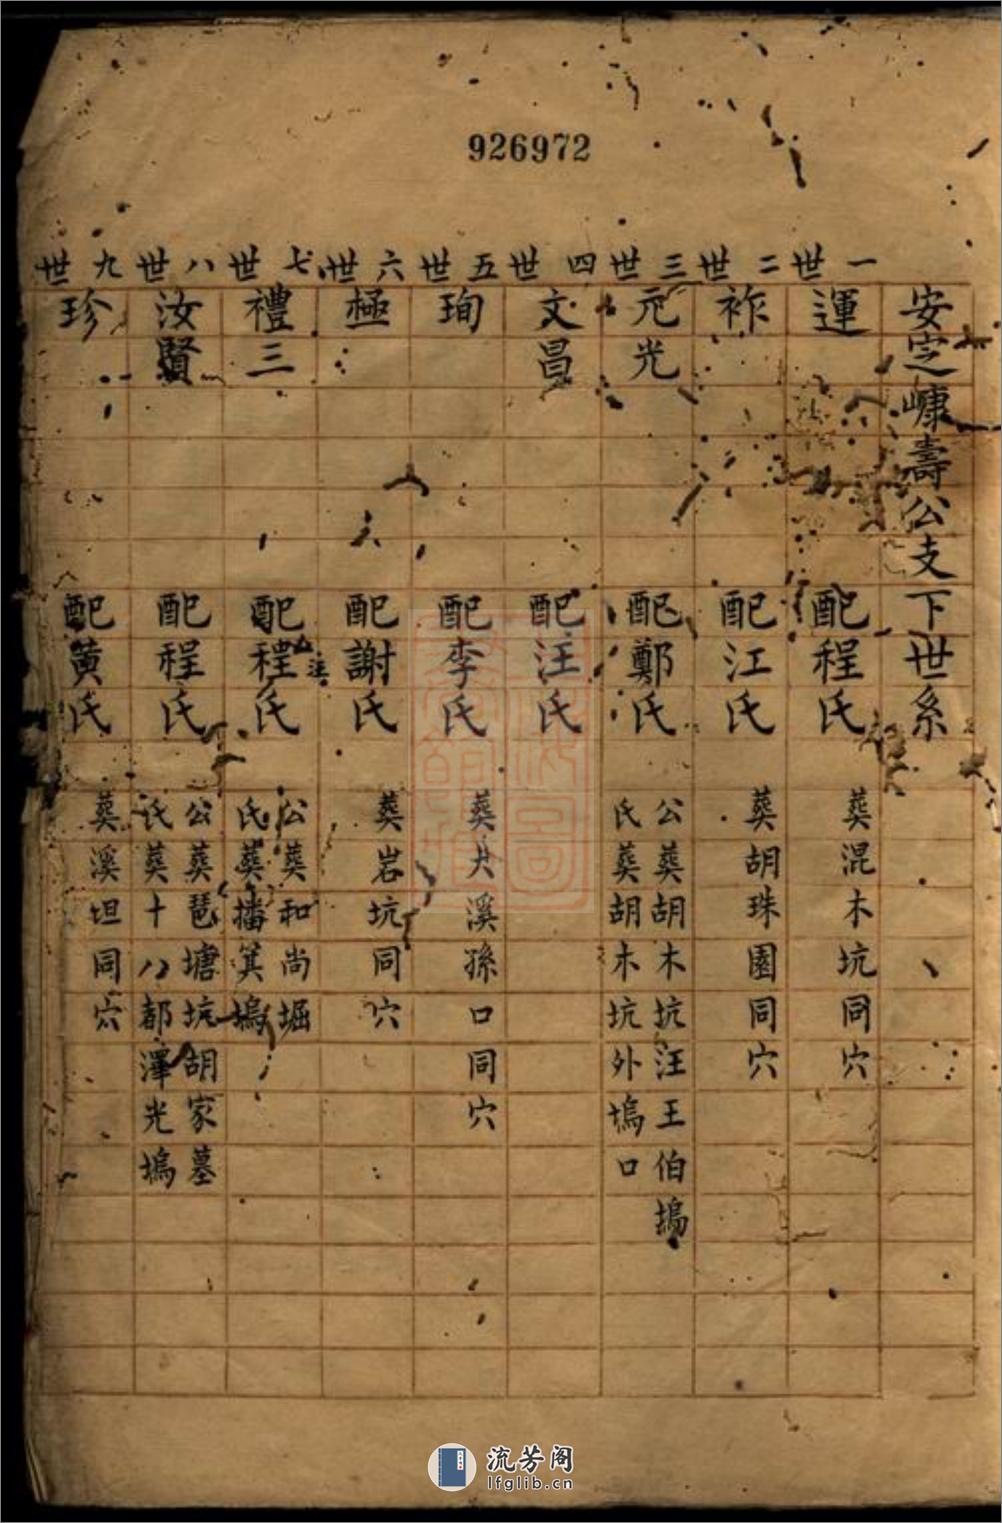 926972
安定㟍壽公支下世系
一世
運
配程氏
葬混木坑同穴
二世
祚
配江氏
葬胡珠園同穴
三世
元光
配鄭氏
公葬胡木坑汪王伯塢
氏葬胡木坑外塢口
四世
文昌
配汪氏
五世
珣
配李氏
葬大溪孫口同穴
六世
極
配謝氏
葬岩坑同穴
七世
禮三
配程氏
汪
公葬和尚堀
氏葬播箕塢
八世
汝賢
配程氏
公葬琶塘坑胡家墓
氏葬十八都澤光塢
九世
珍
配黄氏
葬溪坦同穴
流芳阁
lfglib.cn